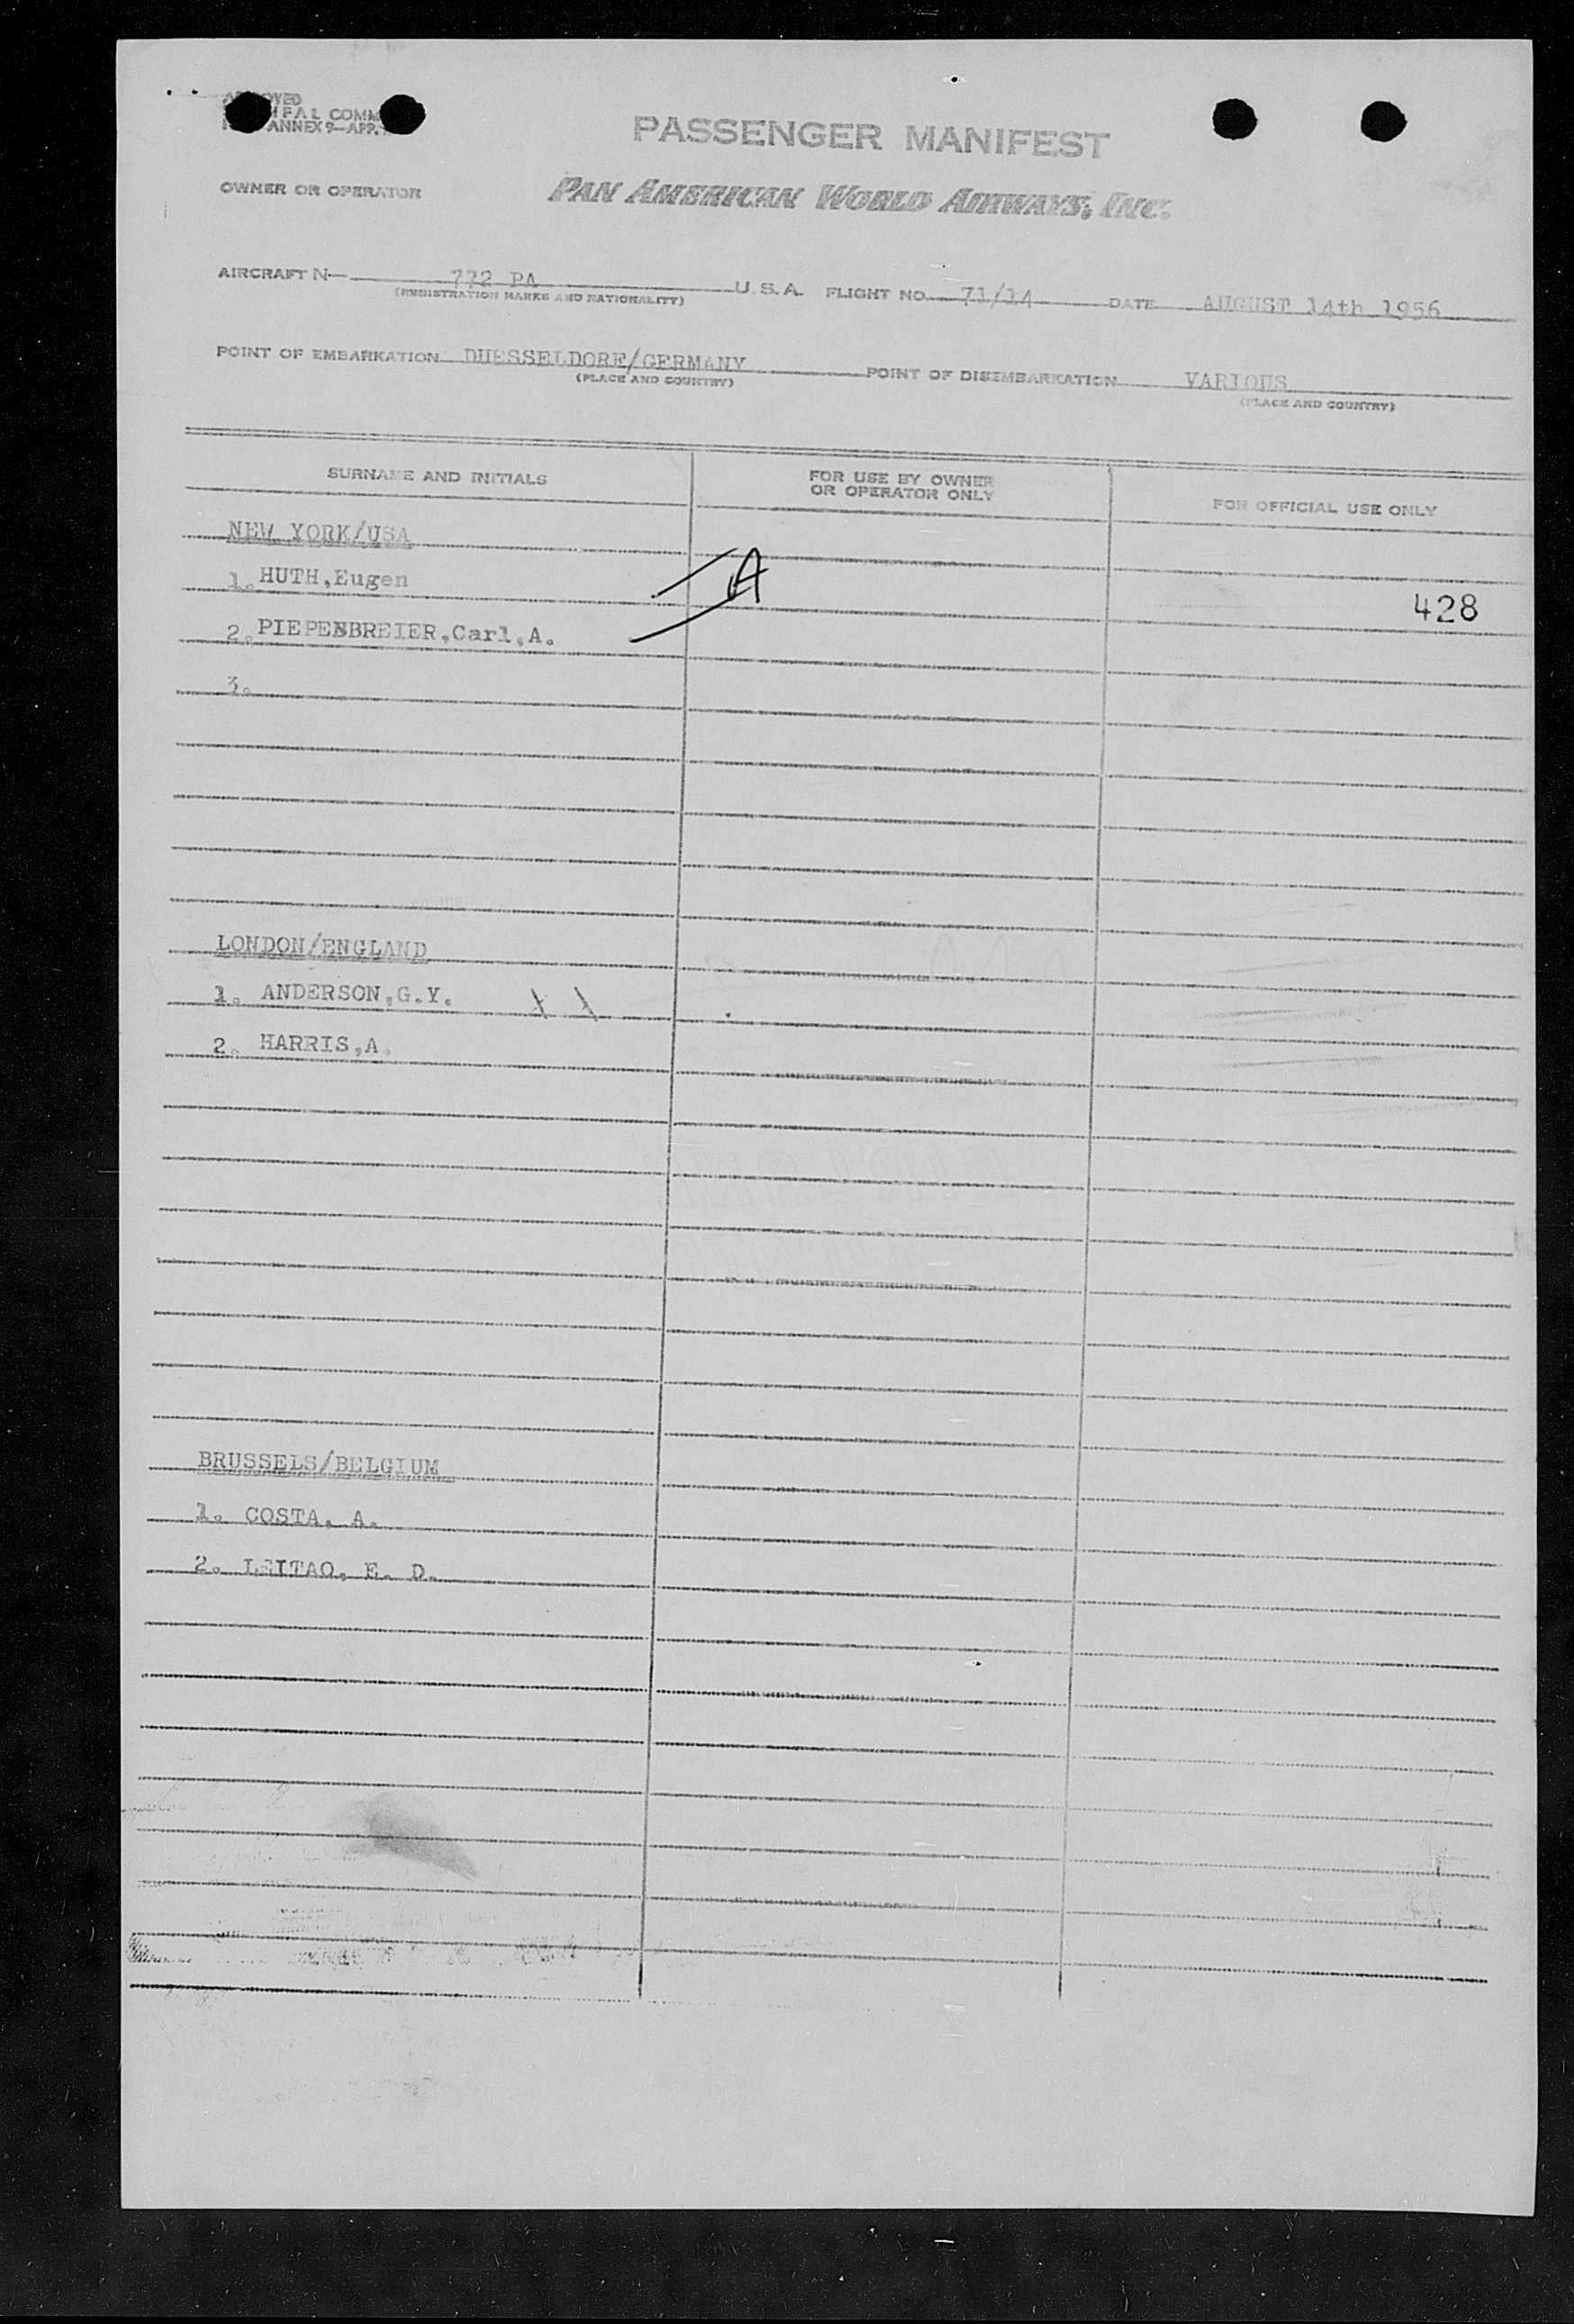 PASSENGER MANIFEST
OWNER OR OPERATOR PAN AMERICAN WORLD AIRWAYS, INC.
AIRCRAFT N 772 PA U.S.A. FLIGHT NO. 71/14 DATE AUGUST 14th 1956
(REGISTRATION MARKS AND NATIONALITY)
POINT OF EMBARKATION DUESSELDORF/GERMANY POINT OF DISEMBARKATION VARIOUS
(PLACE AND COUNTRY) (PLACE AND COUNTRY)
SURNAME AND INITIALS FOR USE BY OWNER OR OPERATOR ONLY FOR OFFICIAL USE ONLY
NEW YORK/USA
1. HUTH,Eugen A
428
2. PIEPENBREIER,Carl,A.
3.
LONDON/ENGLAND
1. ANDERSON,G.Y.
2. HARRIS,A.
BRUSSELS/BELGIUM
1. COSTA, A.
2. LEITAO, E. D.